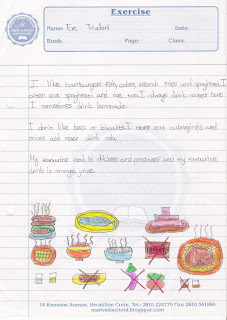 Exercise
Name: Eve
Date:
Book:
Page:
Class:
I like hamburgers, fish, cakes, french fries and spaghetti. I
often eat spaghetti and rice too. I always drink water but
I sometimes drink lemonade.
I don't like peas or biscuits. I never eat aubergines and
and never drink cola.
My favourite food is chicken and potatoes and my favourite
drink is orange juice.
14 Knossos Avenue, Heraklion Crete, Tel.: 2810 224779 Fax: 2810
marhabischool.blogspot.com